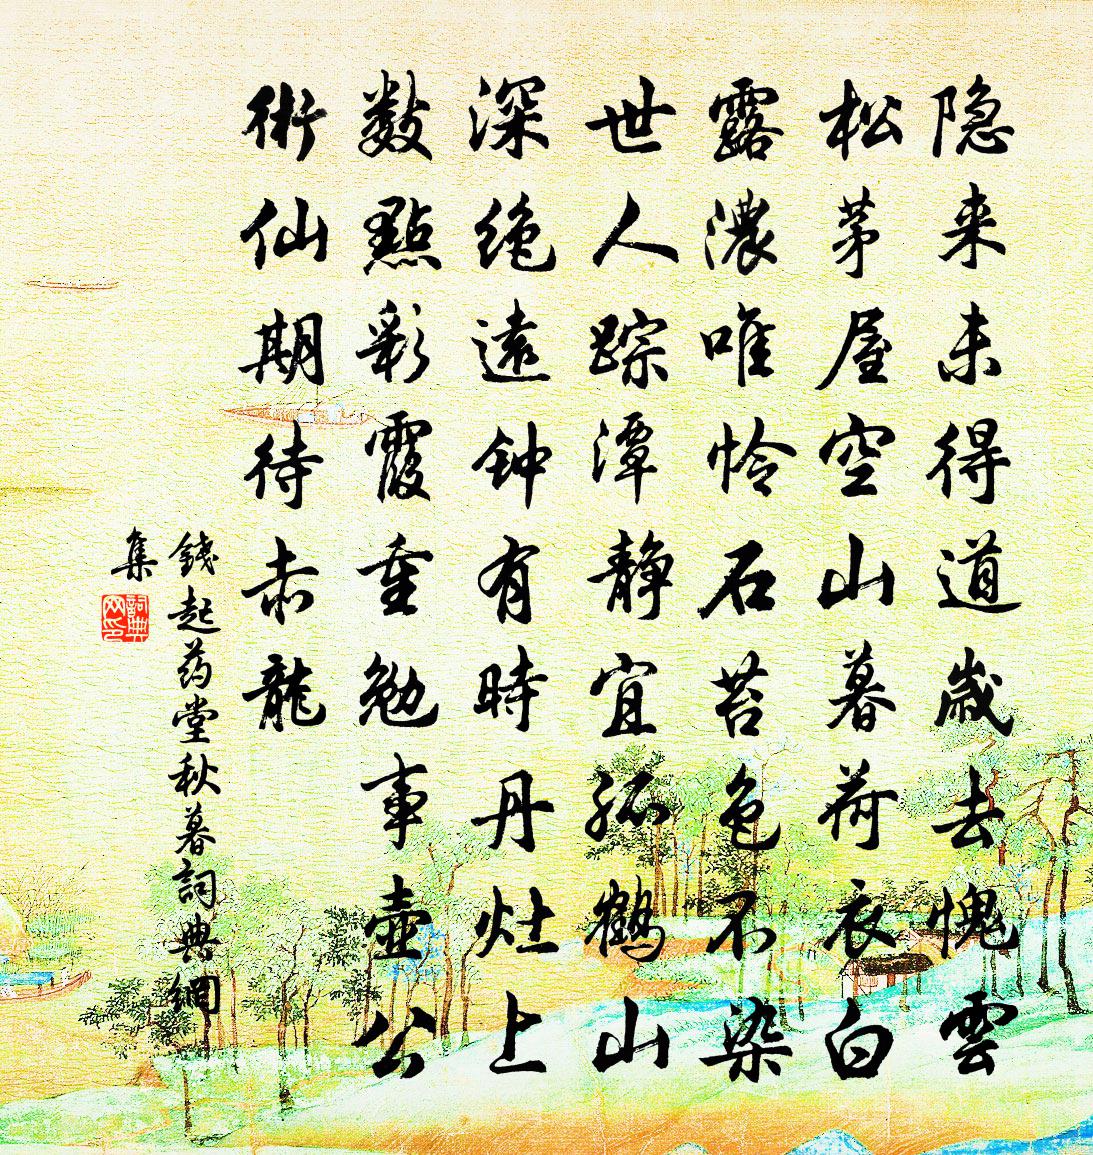 隐来未得道岁去愧雲
松茅屋空山暮荷衣白
露濃唯怜石苔色不染
世人踪潭静宜孤鹤山
深绝遠钟有時丹灶上
数點彩霞重勉事壺公
術仙期待赤龍
錢起药堂秋暮詞典網
集
詞典
网印